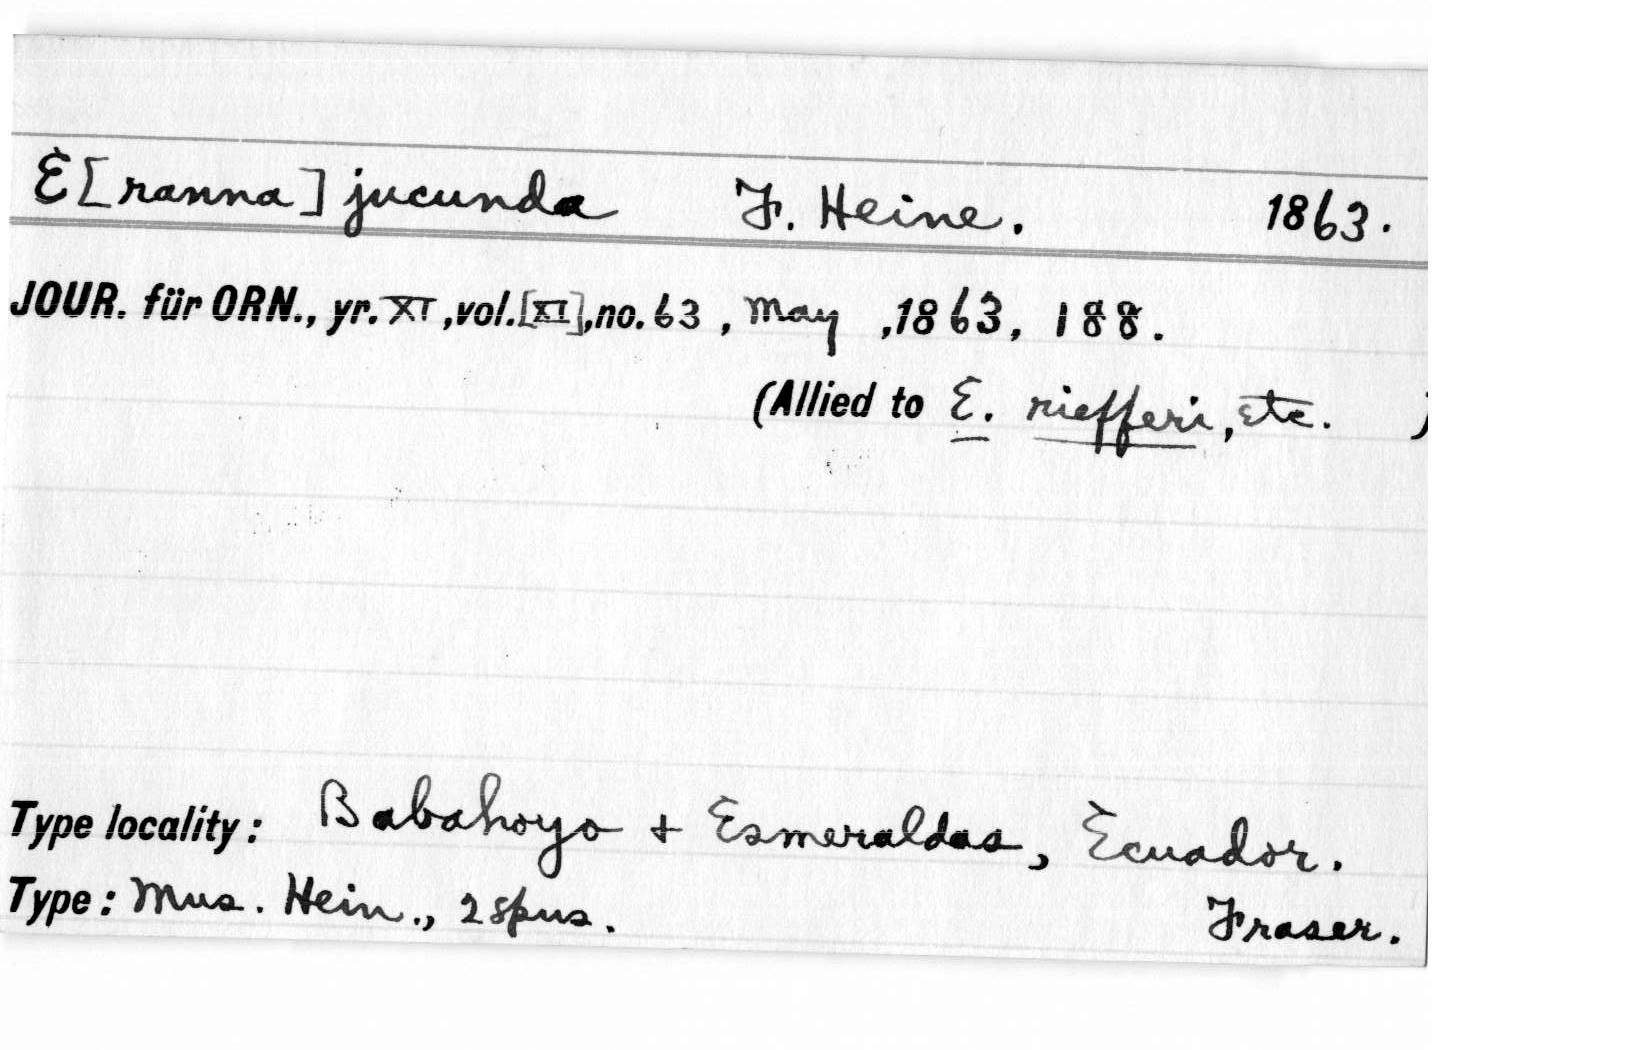 E[ranna] jucunda F. Heine. 1863.
JOUR. für ORN., yr. XI, vol. [XI], no. 63, May, 1863, 188.
(Allied to E. riefferi, etc. )
Type locality: Babahoyo + Esmeraldas, Ecuador.
Type: Mus. Hein., 2 spns. Fraser.